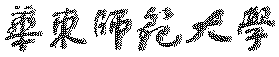 華東師範大學